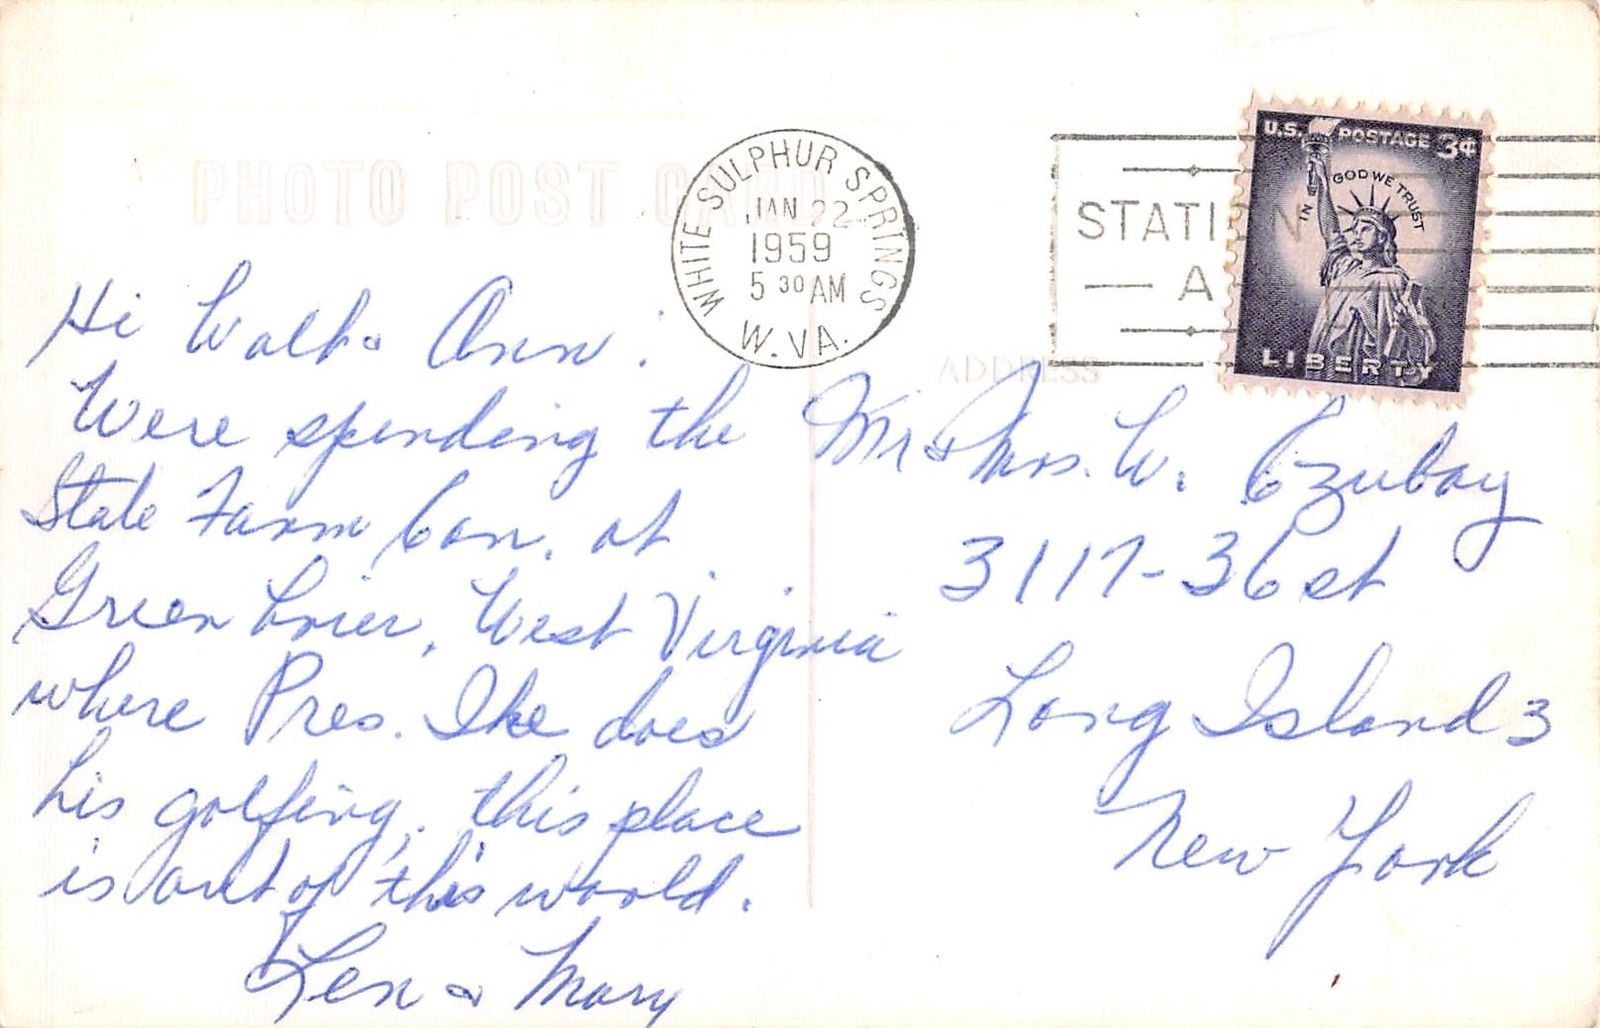 PHOTO POST CARD
WHITE SULPHUR SPRINGS
JAN 22
1959
5 30 AM
W. VA.
STATION
A
U.S. POSTAGE 3¢
IN GOD WE TRUST
LIBERTY
Hi Walt & Ann:
Were spending the
State Farm Con. at
Green brier, West Virginia
where Pres. Ike does
his golfing, this place
is out of this world.
Len & Mary
ADDRESS
Mr & Mrs. W. Czubay
3117-36 st
Long Island 3
New York